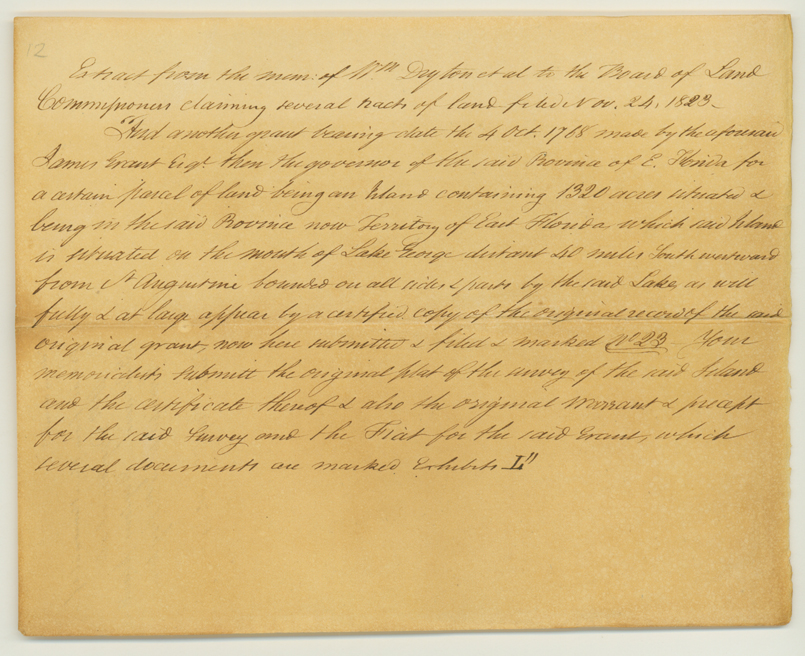 12
Extract from the mem: of Wm. Drayton et al to the Board of Land
Commissioners claiming several tracts of land filed Nov. 24, 1823_
"And another grant bearing date the 4 Oct. 1768 made by the aforesaid
James Grant Esqr. then the governor of the said Province of E. Florida for
a certain parcel of land being an Island containing 1320 acres situated &
being in the said Province now Territory of East Florida, which said Island
is situated on the mouth of Lake George distant 40 miles South westward
from St Augustine bounded on all sides & parts by the said Lake, as will
fully & at large appear by a certified copy of the original record of the said
original grant, now here submitted & filed & marked No 23 Your
memorialists submit the original plat of the survey of the said Island
and the certificate thereof & also the original Warrant & precept
for the said Survey and the Fiat for the said Grant, which
several documents are marked Exhibits L"